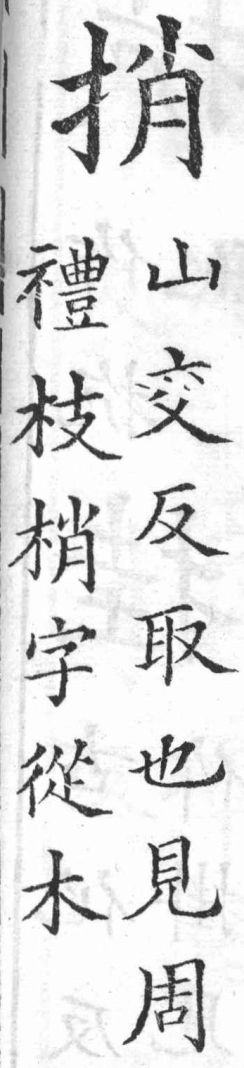 捎
山交反取也見周
禮枝梢字從木